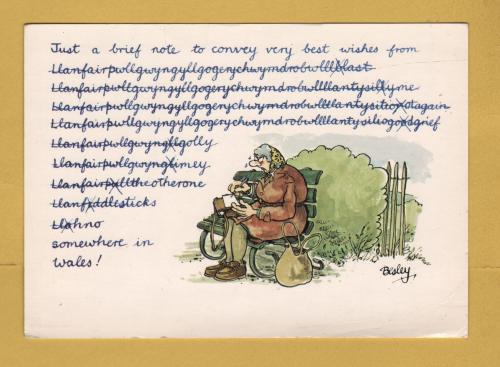 Just a brief note to convey very best wishes from
Llanfairpwllgwyngyllgogerychwyrndrobwlllblast
Llanfairpwllgwyngyllgogerychwyrndrobwllllantysillyme
Llanfairpwllgwyngyllgogerychwyrndrobwllllantysilionotagain
Llanfairpwllgwyngyllgogerychwyrndrobwllllantysiliogoodgrief
Llanfairpwllgwyngllgolly
Llanfairpwllgwyngblimey
Llanfairpulltheotherone
Llanfiddlesticks
Llohno
somewhere in
Wales!
Besley